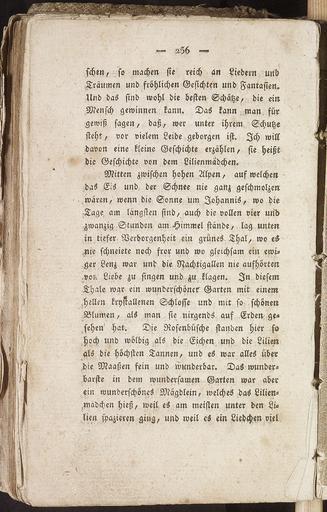 — 256 —
schen, so machen sie reich an Liedern und
Träumen und fröhlichen Gesichten und Fantasien.
Und das sind wohl die besten Schätze, die ein
Mensch gewinnen kann. Das kann man für
gewiß sagen, daß, wer unter ihrem Schutze
steht, vor vielem Leide geborgen ist. Ich will
davon eine kleine Geschichte erzählen, sie heißt
die Geschichte von dem Lilienmädchen.
Mitten zwischen hohen Alpen, auf welchen
das Eis und der Schnee nie ganz geschmolzen
wären, wenn die Sonne um Johannis, wo die
Tage am längsten sind, auch die vollen vier und
zwanzig Stunden am Himmel stände, lag unten
in tiefer Verborgenheit ein grünes Thal, wo es
nie schneiete noch fror und wo gleichsam ein ewi-
ger Lenz war und die Nachtigallen nie aufhörten
von Liebe zu singen und zu klagen. In diesem
Thale war ein wunderschöner Garten mit einem
hellen krystallenen Schlosse und mit so schönen
Blumen, als man sie nirgends auf Erden ge-
sehen hat. Die Rosenbüsche standen hier so
hoch und wölbig als die Eichen und die Lilien
als die höchsten Tannen, und es war alles über
die Maaßen fein und wunderbar. Das wunder-
barste in dem wundersamen Garten war aber
ein wunderschönes Mägdlein, welches das Lilien-
mädchen hieß, weil es am meisten unter den Li-
lien spazieren ging, und weil es ein Liedchen viel